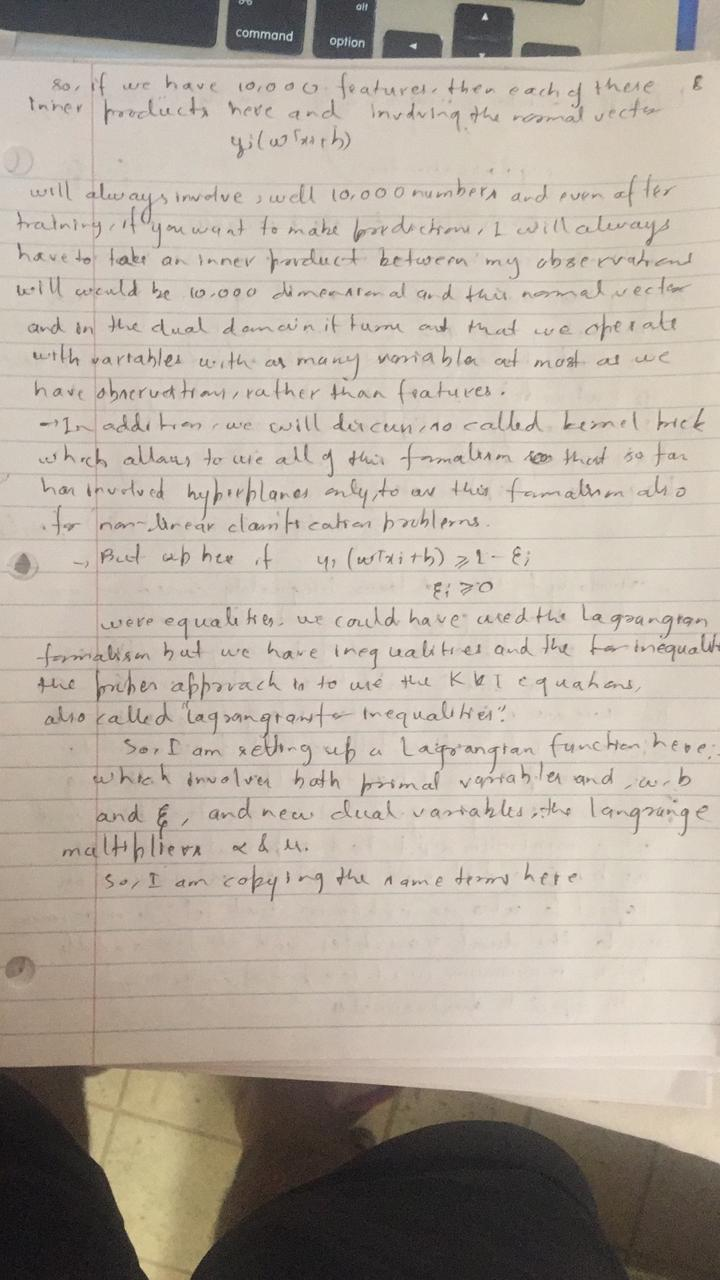 command
alt
option
8
so, if we have 10,000 features, then each of these
inner products here and involving the normal vector
yi(wTxi+b)
will always involve, well 10,000 numbers and even after
training, if you want to make predictions, I will always
have to take an inner product between my observations
will would be 10,000 dimensional and this normal vector
and in the dual domain it turns out that we operate
with variables with as many variables at most as we
have observations, rather than features.
→ In addition, we will discuss, so called kernel trick
which allows to use all of this formalism that so far
has involved hyperplanes only, to use this formalism also
for non-linear classification problems.
→ But up here if yi (wTxi+b) ≥ 1- ξi
ξi ≥ 0
were equalities, we could have used the Lagrangian
formalism but we have inequalities and the for inequalit
the proper approach is to use the KKT equations,
also called "lagrangians for inequalities".
So, I am setting up a Lagrangian function here,
which involves both primal variables and , w, b
and ξ, and new dual variables, the langrange
multipliers α & μ.
So, I am copying the same terms here